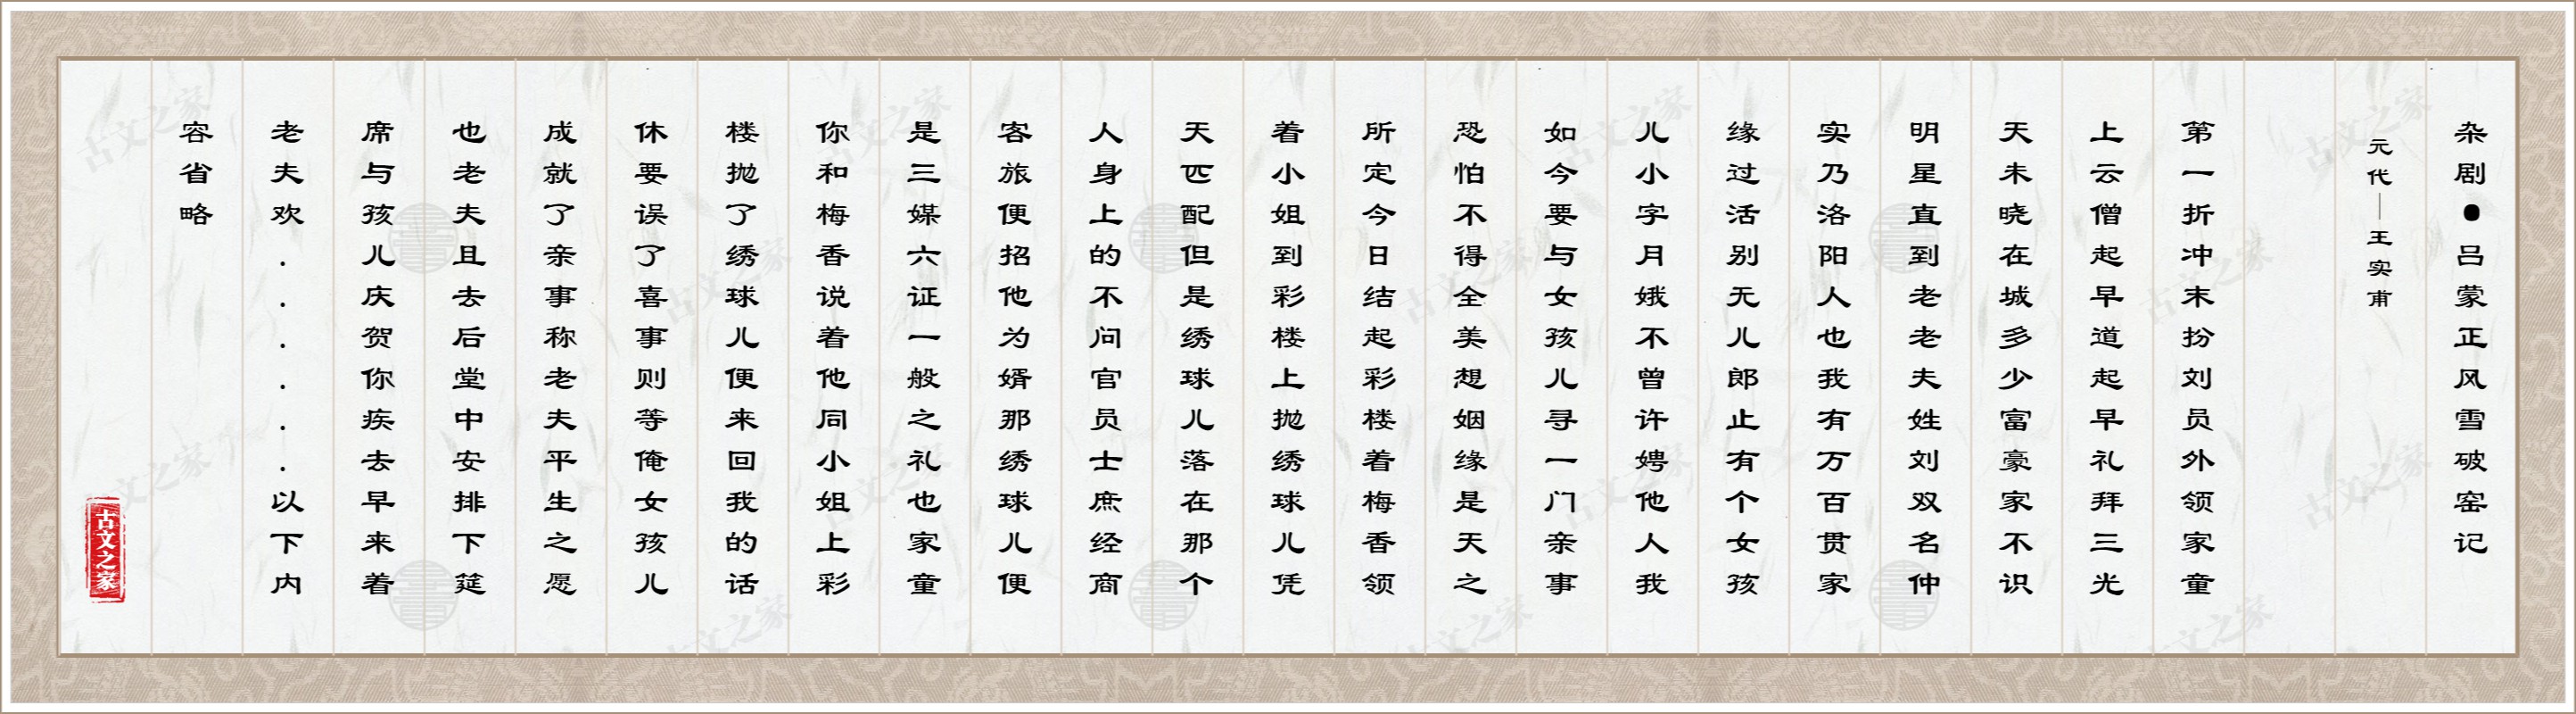 杂剧●吕蒙正风雪破窑记
元代｜王实甫
第一折冲末扮刘员外领家童
上云僧起早道起早礼拜三光
天未晓在城多少富豪家不识
明星直到老老夫姓刘双名仲
实乃洛阳人也我有万百贯家
缘过活别无儿郎止有个女孩
儿小字月娥不曾许娉他人我
如今要与女孩儿寻一门亲事
恐怕不得全美想姻缘是天之
所定今日结起彩楼着梅香领
着小姐到彩楼上抛绣球儿凭
天匹配但是绣球儿落在那个
人身上的不问官员士庶经商
客旅便招他为婿那绣球儿便
是三媒六证一般之礼也家童
你和梅香说着他同小姐上彩
楼抛了绣球儿便来回我的话
休要误了喜事则等俺女孩儿
成就了亲事称老夫平生之愿
也老夫且去后堂中安排下筵
席与孩儿庆贺你疾去早来着
老夫欢......以下内
容省略
古文之家